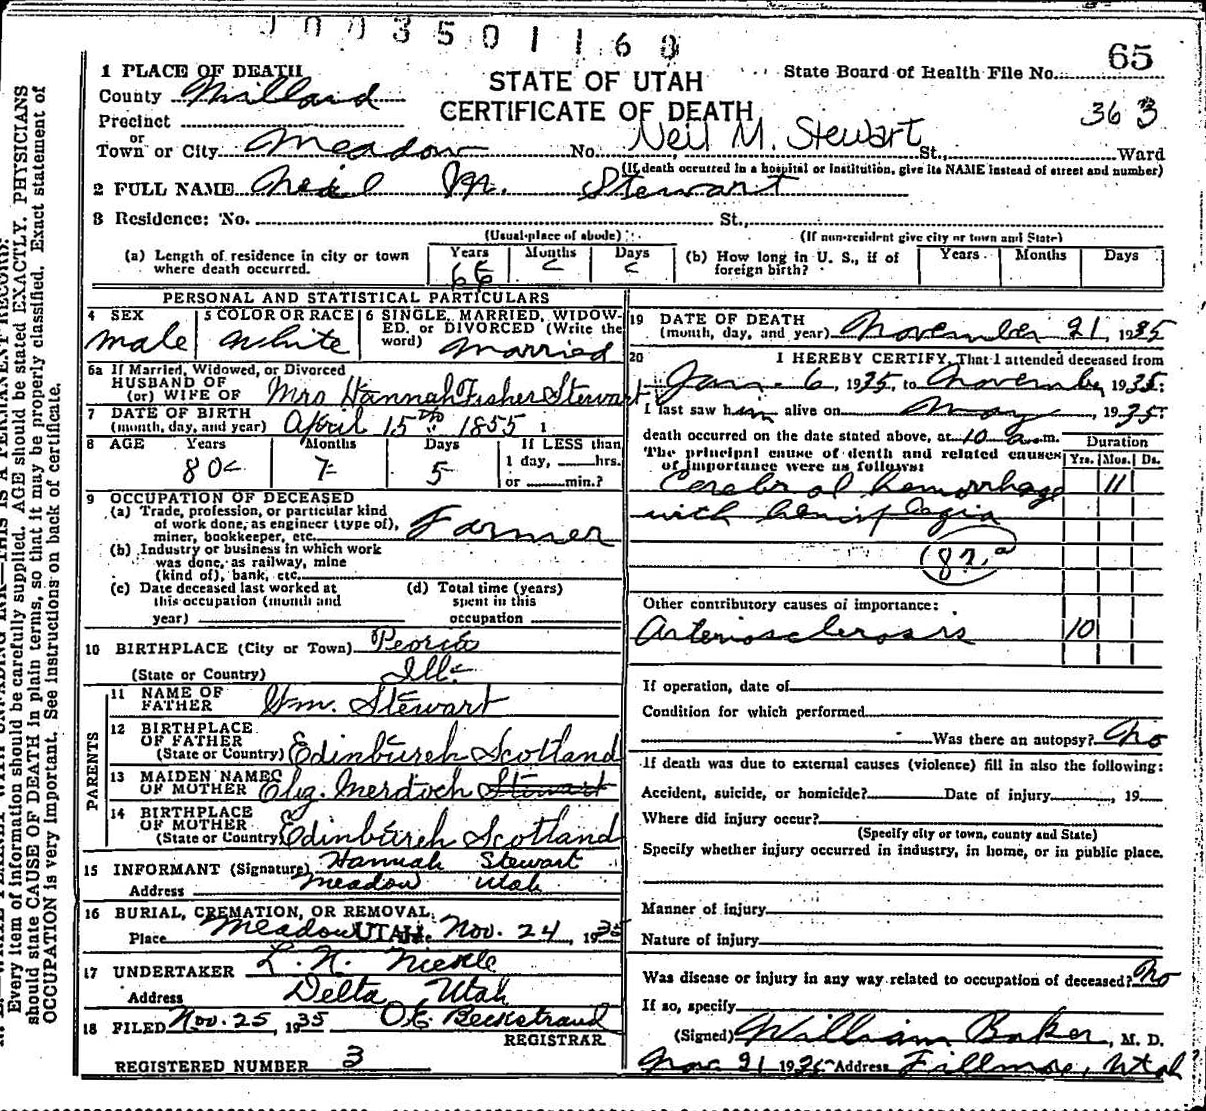 1003501160
65
1 PLACE OF DEATH
STATE OF UTAH
State Board of Health File No.
County Millard
CERTIFICATE OF DEATH
363
Precinct
or
Town or City Meadow No. Neil M. Stewart St., Ward
(If death occurred in a hospital or institution, give its NAME instead of street and number)
2 FULL NAME Neil M. Stewart
3 Residence: No. St.,
(Usual place of abode) (If non-resident give city or town and State)
(a) Length of residence in city or town where death occurred. Years 66 Months Days
(b) How long in U. S., if of foreign birth? Years Months Days
PERSONAL AND STATISTICAL PARTICULARS
4 SEX male
5 COLOR OR RACE White
6 SINGLE, MARRIED, WIDOWED, or DIVORCED (Write the word) Married
6a If Married, Widowed, or Divorced
HUSBAND OF
(or) WIFE OF Mrs Hannah Fisher Stewart
7 DATE OF BIRTH
(month, day, and year) April 15th 1855 1
8 AGE Years 80 Months 7 Days 5 If LESS than
1 day, hrs.
or min.?
9 OCCUPATION OF DECEASED
(a) Trade, profession, or particular kind
of work done, as engineer (type of),
miner, bookkeeper, etc. Farmer
(b) Industry or business in which work
was done, as railway, mine
(kind of), bank, etc.
(c) Date deceased last worked at
this occupation (month and
year)
(d) Total time (years)
spent in this
occupation
10 BIRTHPLACE (City or Town) Peoria
(State or Country) Ill.
PARENTS
11 NAME OF
FATHER Wm. Stewart
12 BIRTHPLACE
OF FATHER
(State or Country) Edinburgh Scotland
13 MAIDEN NAME
OF MOTHER Eliz. Merdoch Stewart
14 BIRTHPLACE
OF MOTHER
(State or Country) Edinburgh Scotland
15 INFORMANT (Signature) Hannah Stewart
Address Meadow Utah
16 BURIAL, CREMATION, OR REMOVAL,
Place Meadow UTAH Date Nov. 24, 1935
17 UNDERTAKER L. N.
Address Delta Utah
18 FILED Nov. 25, 1935 O E Beckstrand
REGISTRAR
REGISTERED NUMBER 3
19 DATE OF DEATH
(month, day, and year) November 21, 1935
20 I HEREBY CERTIFY, That I attended deceased from
6, 1935, to November, 1935:
I last saw him alive on May, 1935:
death occurred on the date stated above, at 10 a.m.
Duration
The principal cause of death and related causes
of importance were as follows:
Yrs. Mos. Ds.
Cerebral hemorrhage 11
with hemiplegia
82.a
Other contributory causes of importance:
Arteriosclerosis 10
If operation, date of
Condition for which performed
Was there an autopsy? No
If death was due to external causes (violence) fill in also the following:
Accident, suicide, or homicide? Date of injury, 19
Where did injury occur?
(Specify city or town, county and State)
Specify whether injury occurred in industry, in home, or in public place.
Manner of injury
Nature of injury
Was disease or injury in any way related to occupation of deceased? No
If so, specify
(Signed) William Baker, M. D.
Nov. 21 1935 Address Fillmore, Utah
Every item of information should be carefully supplied. AGE should be stated EXACTLY. PHYSICIANS
should state CAUSE OF DEATH in plain terms, so that it may be properly classified. Exact statement of
OCCUPATION is very important. See instructions on back of certificate.